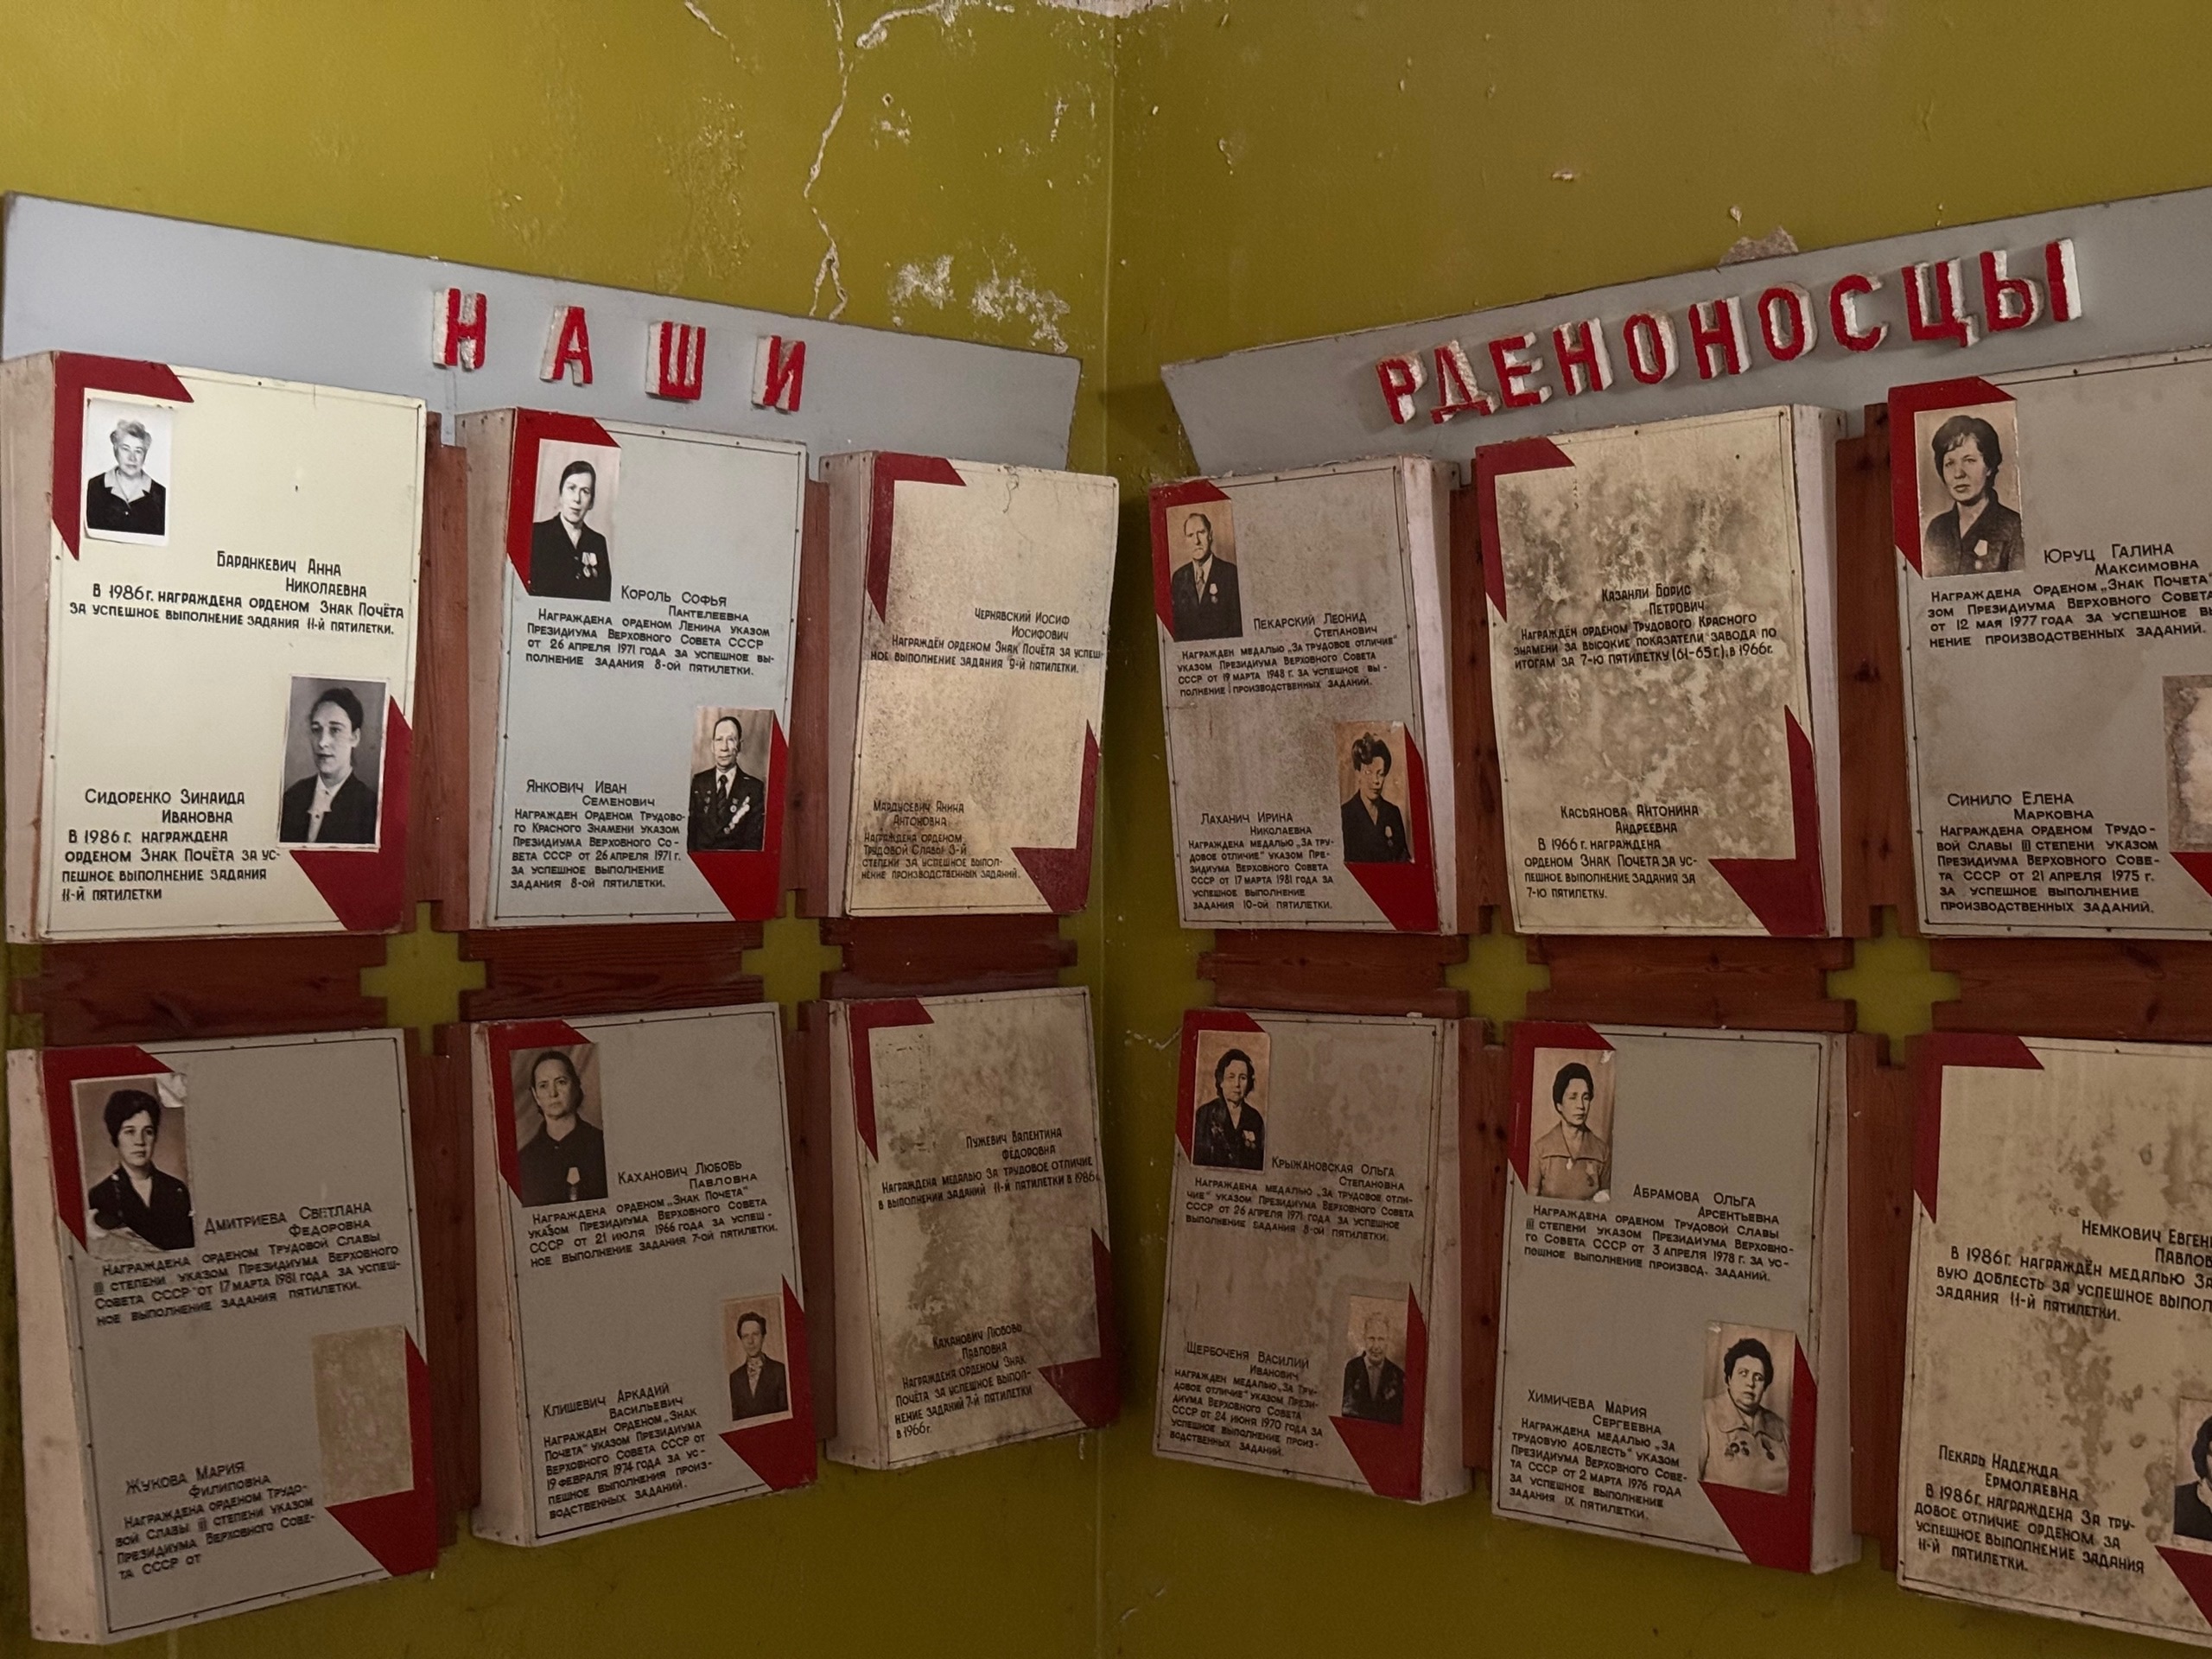 НАШИ
РДЕНОНОСЦЫ
БАРАНКЕВИЧ АННА
НИКОЛАЕВНА
В 1986г. НАГРАЖДЕНА ОРДЕНОМ ЗНАК ПОЧЁТА
ЗА УСПЕШНОЕ ВЫПОЛНЕНИЕ ЗАДАНИЯ 11-Й ПЯТИЛЕТКИ.
СИДОРЕНКО ЗИНАИДА
ИВАНОВНА
В 1986 г. НАГРАЖДЕНА
ОРДЕНОМ ЗНАК ПОЧЁТА ЗА УС-
ПЕШНОЕ ВЫПОЛНЕНИЕ ЗАДАНИЯ
11-Й ПЯТИЛЕТКИ
КОРОЛЬ СОФЬЯ
ПАНТЕЛЕЕВНА
НАГРАЖДЕНА ОРДЕНОМ ЛЕНИНА УКАЗОМ
ПРЕЗИДИУМА ВЕРХОВНОГО СОВЕТА СССР
ОТ 26 АПРЕЛЯ 1971 ГОДА ЗА УСПЕШНОЕ ВЫ-
ПОЛНЕНИЕ ЗАДАНИЯ 8-ОЙ ПЯТИЛЕТКИ.
ЯНКОВИЧ ИВАН
СЕМЕНОВИЧ
НАГРАЖДЕН ОРДЕНОМ ТРУДОВО-
ГО КРАСНОГО ЗНАМЕНИ УКАЗОМ
ПРЕЗИДИУМА ВЕРХОВНОГО СО-
ВЕТА СССР ОТ 26 АПРЕЛЯ 1971 г.
ЗА УСПЕШНОЕ ВЫПОЛНЕНИЕ
ЗАДАНИЯ 8-ОЙ ПЯТИЛЕТКИ.
ЧЕРНЯВСКИЙ ИОСИФ
ИОСИФОВИЧ
НАГРАЖДЁН ОРДЕНОМ ЗНАК ПОЧЁТА ЗА УСПЕШ-
НОЕ ВЫПОЛНЕНИЕ ЗАДАНИЯ 9-Й ПЯТИЛЕТКИ.
МАРДУСЕВИЧ ЯНИНА
АНТОНОВНА
НАГРАЖДЕНА ОРДЕНОМ
ТРУДОВОЙ СЛАВЫ 3-Й
СТЕПЕНИ ЗА УСПЕШНОЕ ВЫПОЛ-
НЕНИЕ ПРОИЗВОДСТВЕННЫХ ЗАДАНИЙ.
ПЕКАРСКИЙ ЛЕОНИД
СТЕПАНОВИЧ
НАГРАЖДЕН МЕДАЛЬЮ „ЗА ТРУДОВОЕ ОТЛИЧИЕ"
УКАЗОМ ПРЕЗИДИУМА ВЕРХОВНОГО СОВЕТА
СССР ОТ 19 МАРТА 1948 г. ЗА УСПЕШНОЕ ВЫ-
ПОЛНЕНИЕ ПРОИЗВОДСТВЕННЫХ ЗАДАНИЙ.
ЛАХАНИЧ ИРИНА
НИКОЛАЕВНА
НАГРАЖДЕНА МЕДАЛЬЮ „ЗА ТРУ-
ДОВОЕ ОТЛИЧИЕ" УКАЗОМ ПРЕ-
ЗИДИУМА ВЕРХОВНОГО СОВЕТА
СССР ОТ 17 МАРТА 1981 ГОДА ЗА
УСПЕШНОЕ ВЫПОЛНЕНИЕ
ЗАДАНИЯ 10-ОЙ ПЯТИЛЕТКИ.
КАЗАНЛИ БОРИС
ПЕТРОВИЧ
НАГРАЖДЁН ОРДЕНОМ ТРУДОВОГО КРАСНОГО
ЗНАМЕНИ ЗА ВЫСОКИЕ ПОКАЗАТЕЛИ ЗАВОДА ПО
ИТОГАМ ЗА 7-Ю ПЯТИЛЕТКУ (61-65 г.), В 1966г.
КАСЬЯНОВА АНТОНИНА
АНДРЕЕВНА
В 1966 г. НАГРАЖДЕНА
ОРДЕНОМ ЗНАК ПОЧЁТА ЗА УС-
ПЕШНОЕ ВЫПОЛНЕНИЕ ЗАДАНИЯ ЗА
7-Ю ПЯТИЛЕТКУ.
ЮРУЦ ГАЛИНА
МАКСИМОВНА
НАГРАЖДЕНА ОРДЕНОМ „ЗНАК ПОЧЕТА"
ЗОМ ПРЕЗИДИУМА ВЕРХОВНОГО СОВЕТА
ОТ 12 МАЯ 1977 ГОДА ЗА УСПЕШНОЕ ВЫ
НЕНИЕ ПРОИЗВОДСТВЕННЫХ ЗАДАНИЙ.
СИНИЛО ЕЛЕНА
МАРКОВНА
НАГРАЖДЕНА ОРДЕНОМ ТРУДО-
ВОЙ СЛАВЫ III СТЕПЕНИ УКАЗОМ
ПРЕЗИДИУМА ВЕРХОВНОГО СОВЕ-
ТА СССР ОТ 21 АПРЕЛЯ 1975 г.
ЗА УСПЕШНОЕ ВЫПОЛНЕНИЕ
ПРОИЗВОДСТВЕННЫХ ЗАДАНИЙ.
ДМИТРИЕВА СВЕТЛАНА
ФЕДОРОВНА
НАГРАЖДЕНА ОРДЕНОМ ТРУДОВОЙ СЛАВЫ
III СТЕПЕНИ УКАЗОМ ПРЕЗИДИУМА ВЕРХОВНОГО
СОВЕТА СССР ОТ 17 МАРТА 1981 ГОДА ЗА УСПЕШ-
НОЕ ВЫПОЛНЕНИЕ ЗАДАНИЯ ПЯТИЛЕТКИ.
ЖУКОВА МАРИЯ
ФИЛИПОВНА
НАГРАЖДЕНА ОРДЕНОМ ТРУДО-
ВОЙ СЛАВЫ III СТЕПЕНИ УКАЗОМ
ПРЕЗИДИУМА ВЕРХОВНОГО СОВЕ-
ТА СССР ОТ
КАХАНОВИЧ ЛЮБОВЬ
ПАВЛОВНА
НАГРАЖДЕНА ОРДЕНОМ „ЗНАК ПОЧЕТА"
УКАЗОМ ПРЕЗИДИУМА ВЕРХОВНОГО СОВЕТА
СССР ОТ 21 ИЮЛЯ 1966 ГОДА ЗА УСПЕШ-
НОЕ ВЫПОЛНЕНИЕ ЗАДАНИЯ 7-ОЙ ПЯТИЛЕТКИ.
КЛИШЕВИЧ АРКАДИЙ
ВАСИЛЬЕВИЧ
НАГРАЖДЕН ОРДЕНОМ „ЗНАК
ПОЧЕТА" УКАЗОМ ПРЕЗИДИУМА
ВЕРХОВНОГО СОВЕТА СССР ОТ
19 ФЕВРАЛЯ 1974 ГОДА ЗА УС-
ПЕШНОЕ ВЫПОЛНЕНИЯ ПРОИЗ-
ВОДСТВЕННЫХ ЗАДАНИЙ.
ПУЖЕВИЧ ВАЛЕНТИНА
ФЁДОРОВНА
НАГРАЖДЕНА МЕДАЛЬЮ ЗА ТРУДОВОЕ ОТЛИЧИЕ
В ВЫПОЛНЕНИИ ЗАДАНИЙ 11-Й ПЯТИЛЕТКИ В 1986г.
КАХАНОВИЧ ЛЮБОВЬ
ПАВЛОВНА
НАГРАЖДЕНА ОРДЕНОМ ЗНАК
ПОЧЁТА ЗА УСПЕШНОЕ ВЫПОЛ-
НЕНИЕ ЗАДАНИЙ 7-Й ПЯТИЛЕТКИ
В 1966г.
КРЫЖАНОВСКАЯ ОЛЬГА
СТЕПАНОВНА
НАГРАЖДЕНА МЕДАЛЬЮ „ЗА ТРУДОВОЕ ОТЛИ-
ЧИЕ" УКАЗОМ ПРЕЗИДИУМА ВЕРХОВНОГО СОВЕТА
СССР ОТ 26 АПРЕЛЯ 1971 ГОДА ЗА УСПЕШНОЕ
ВЫПОЛНЕНИЕ ЗАДАНИЯ 8-ОЙ ПЯТИЛЕТКИ.
ЩЕРБОЧЕНЯ ВАСИЛИЙ
ИВАНОВИЧ
НАГРАЖДЕН МЕДАЛЬЮ „ЗА ТРУ-
ДОВОЕ ОТЛИЧИЕ" УКАЗОМ ПРЕЗИ-
ДИУМА ВЕРХОВНОГО СОВЕТА
СССР ОТ 24 ИЮНЯ 1970 ГОДА ЗА
УСПЕШНОЕ ВЫПОЛНЕНИЕ ПРОИЗ-
ВОДСТВЕННЫХ ЗАДАНИЙ.
АБРАМОВА ОЛЬГА
АРСЕНТЬЕВНА
НАГРАЖДЕНА ОРДЕНОМ ТРУДОВОЙ СЛАВЫ
III СТЕПЕНИ УКАЗОМ ПРЕЗИДИУМА ВЕРХОВНО-
ГО СОВЕТА СССР ОТ 3 АПРЕЛЯ 1978 г. ЗА УС-
ПОШНОЕ ВЫПОЛНЕНИЕ ПРОИЗВОД. ЗАДАНИЙ.
ХИМИЧЕВА МАРИЯ
СЕРГЕЕВНА
НАГРАЖДЕНА МЕДАЛЬЮ „ЗА
ТРУДОВУЮ ДОБЛЕСТЬ" УКАЗОМ
ПРЕЗИДИУМА ВЕРХОВНОГО СОВЕ-
ТА СССР ОТ 2 МАРТА 1976 ГОДА
ЗА УСПЕШНОЕ ВЫПОЛНЕНИЕ
ЗАДАНИЯ IX ПЯТИЛЕТКИ.
НЕМКОВИЧ ЕВГЕН
ПАВЛОВ
В 1986г. НАГРАЖДЁН МЕДАЛЬЮ ЗА
ВУЮ ДОБЛЕСТЬ ЗА УСПЕШНОЕ ВЫПОЛ
ЗАДАНИЯ 11-Й ПЯТИЛЕТКИ.
ПЕКАРЬ НАДЕЖДА
ЕРМОЛАЕВНА
В 1986г. НАГРАЖДЕНА ЗА ТРУ-
ДОВОЕ ОТЛИЧИЕ ОРДЕНОМ ЗА
УСПЕШНОЕ ВЫПОЛНЕНИЕ ЗАДАНИЯ
11-Й ПЯТИЛЕТКИ.